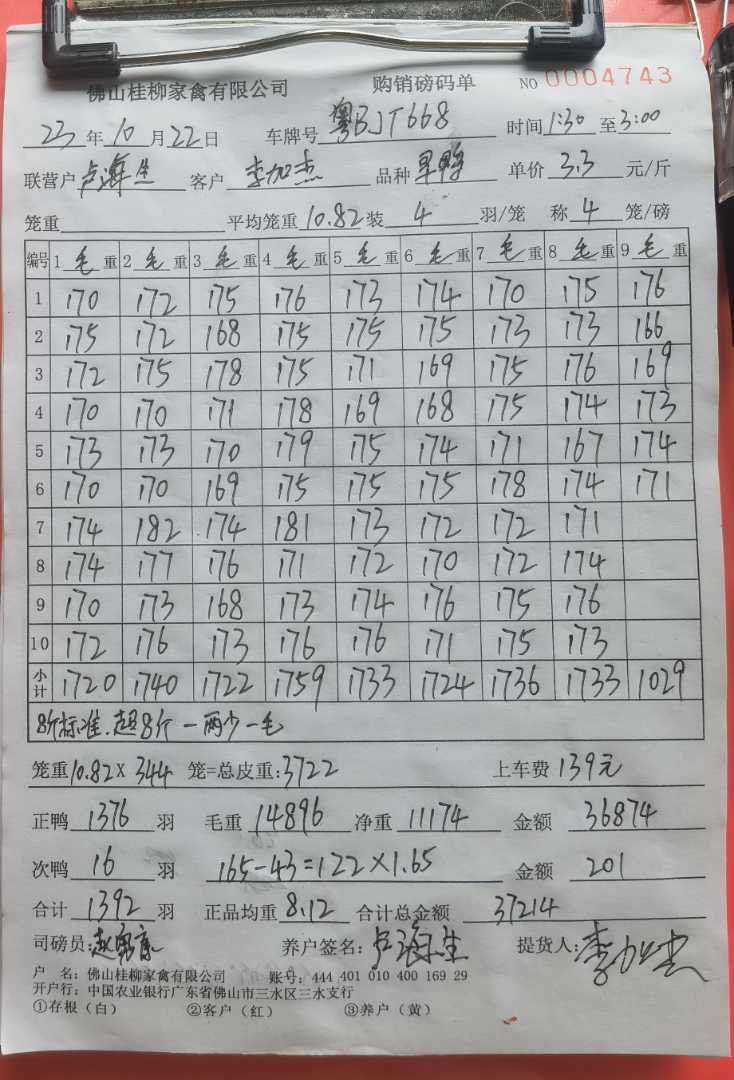 佛山桂柳家禽有限公司 购销磅码单 NO 0004743
23年10月22日 车牌号 粤BJT668 时间1:30至3:00
联营户 卢海生 客户 李加杰 品种 旱鸭 单价 3.3 元/斤
笼重 平均笼重 10.82 装 4 羽/笼 称 4 笼/磅
编号 1毛重 2毛重 3毛重 4毛重 5毛重 6毛重 7毛重 8毛重 9毛重
1 170 172 175 176 173 174 170 175 176
2 175 172 168 175 175 175 173 173 166
3 172 175 178 175 171 169 175 176 169
4 170 170 171 178 169 168 175 174 173
5 173 173 170 179 175 174 171 167 174
6 170 170 169 175 175 175 178 174 171
7 174 182 174 181 173 172 172 171
8 174 177 176 171 172 170 172 174
9 170 173 168 173 174 176 175 176
10 172 176 173 176 176 171 175 173
小计 1720 1740 1722 1759 1733 1724 1736 1733 1029
8斤标准.超8斤一两少一毛
笼重10.82X 344 笼=总皮重:3722 上车费 139元
正鸭 1376 羽 毛重 14896 净重 11174 金额 36874
次鸭 16 羽 165-43=122×1.65 金额 201
合计 1392 羽 正品均重 8.12 合计总金额 37214
司磅员: 养户签名: 卢海生 提货人: 李加杰
户 名: 佛山桂柳家禽有限公司 账号: 444 401 010 400 169 29
开户行: 中国农业银行广东省佛山市三水区三水支行
①存根（白） ②客户（红） ③养户（黄）